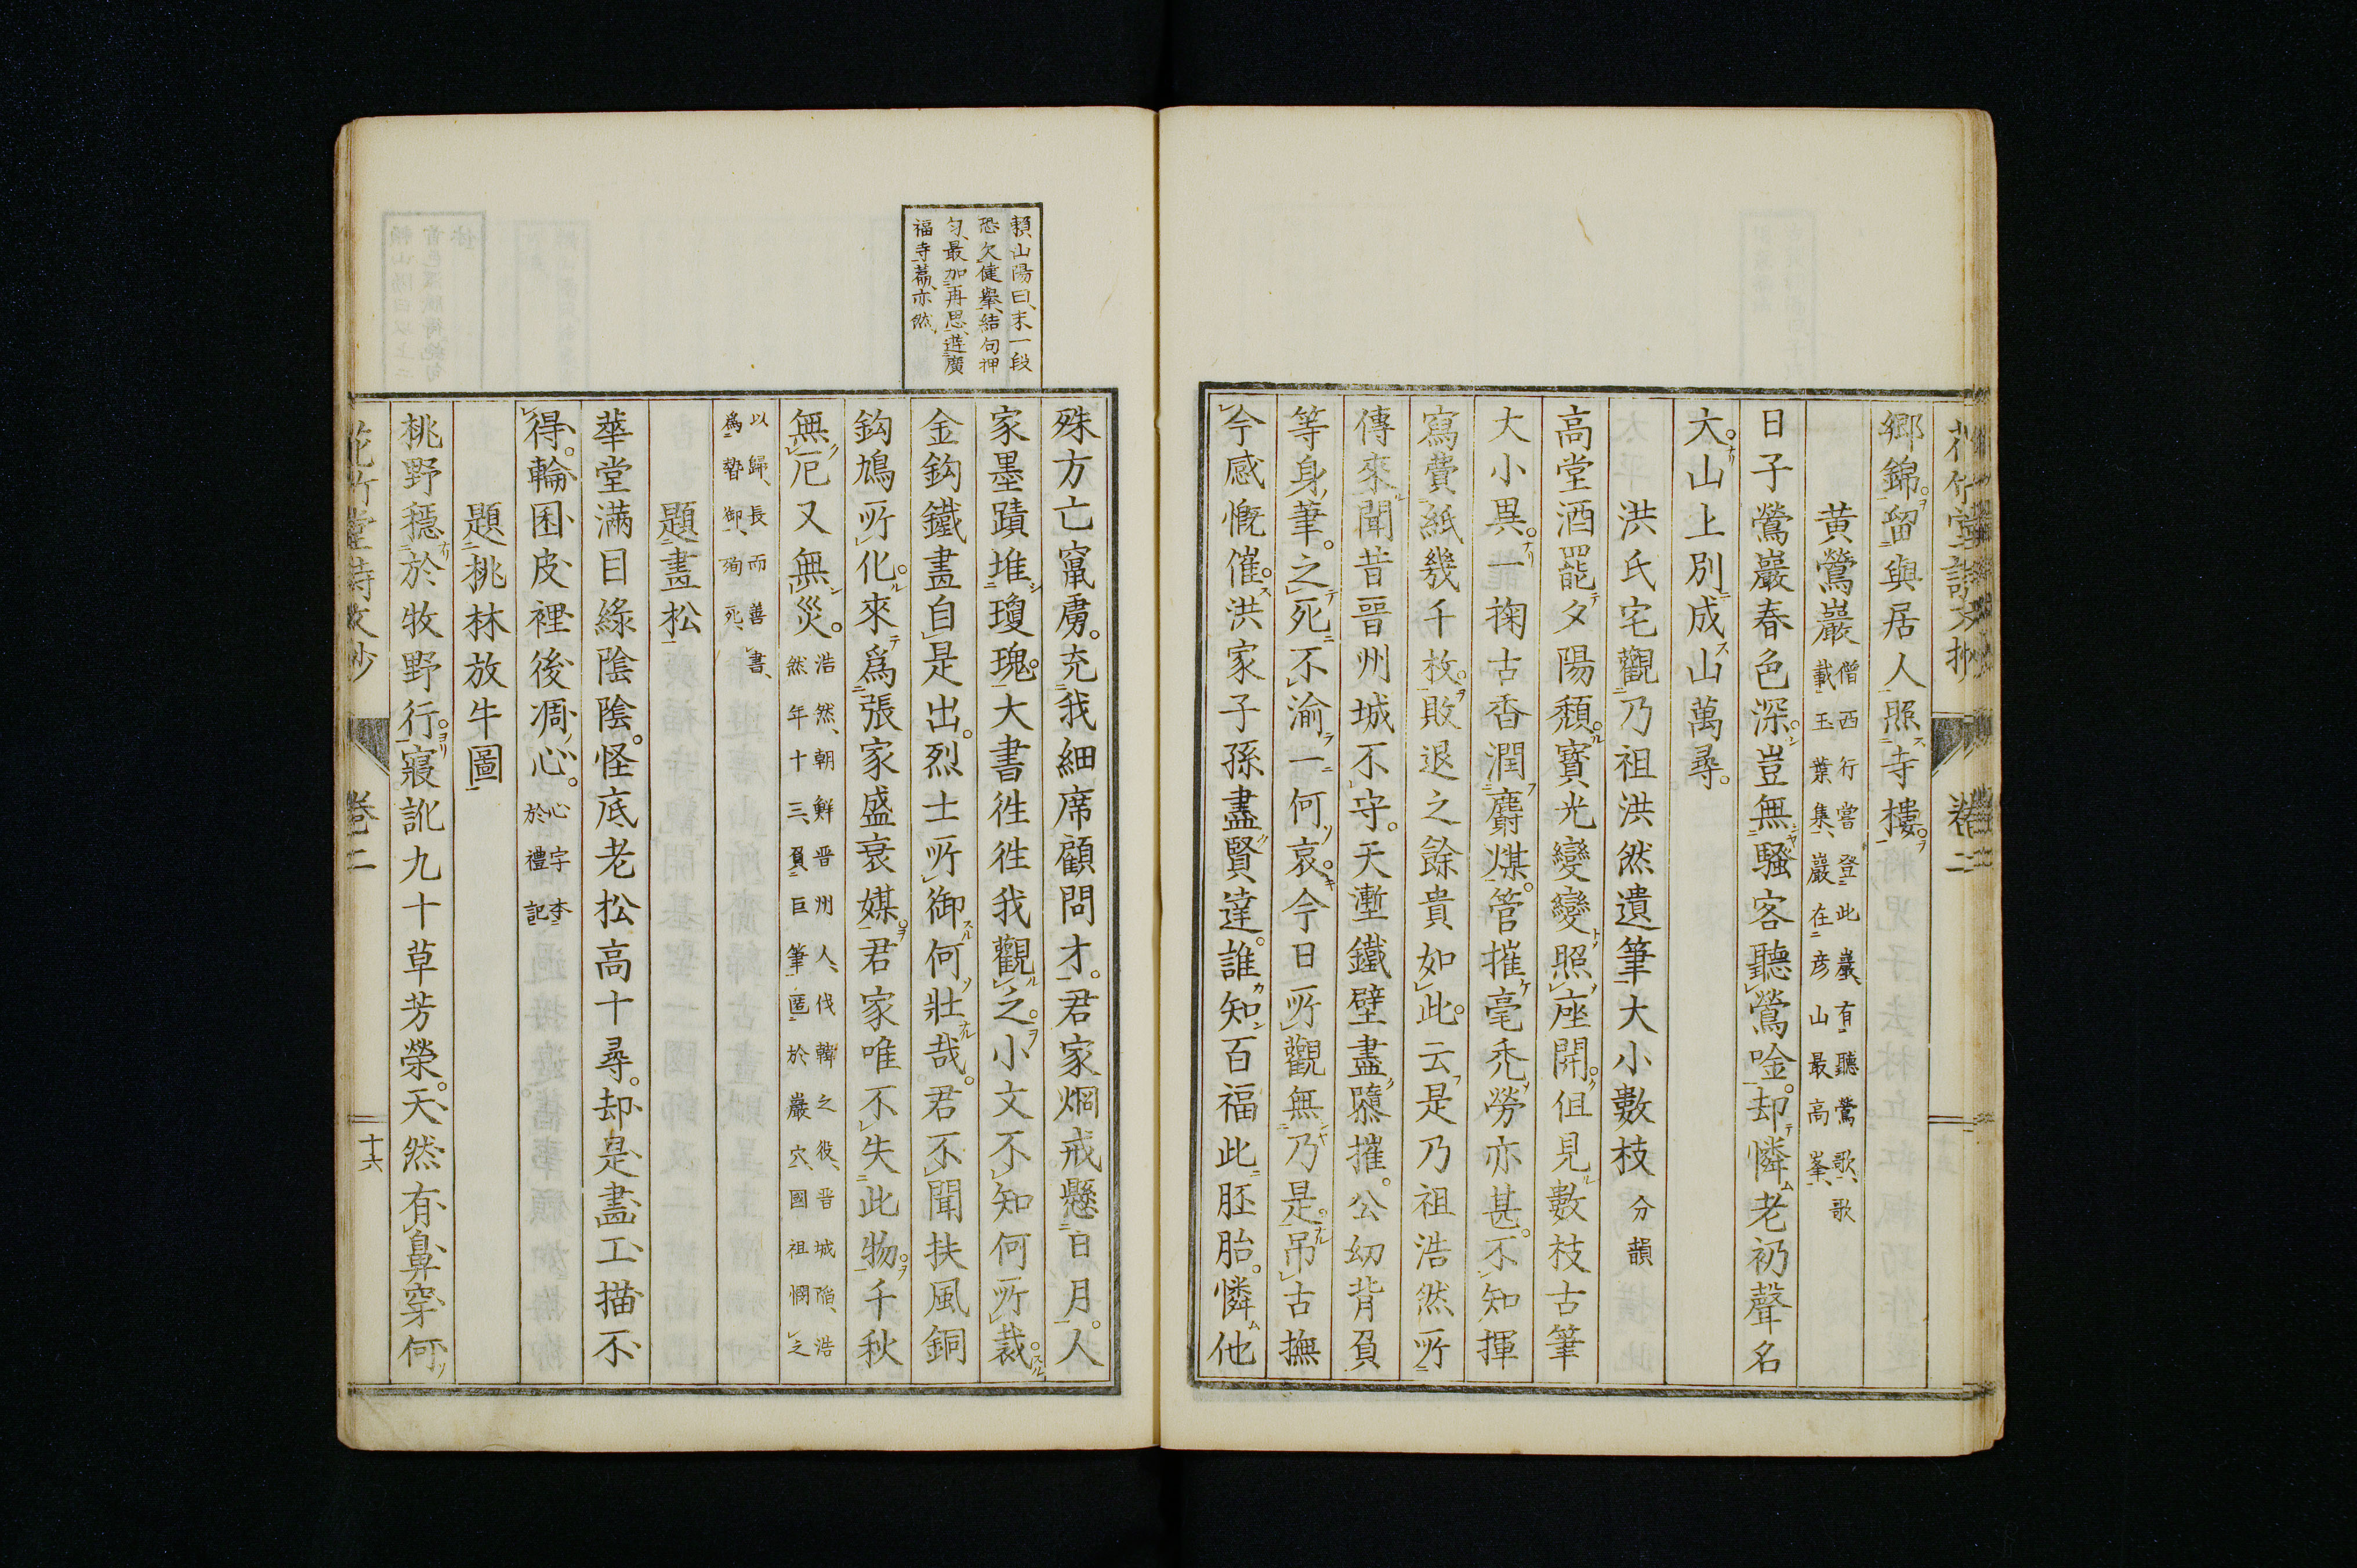 鄉錦留與居人照寺樓
黃鶯巖
僧西行嘗登此巖有聽鶯歌歌
載玉葉集巖在彦山最高峯
日子鶯巖春色深豈無騷客聽鶯唫却憐老衲聲名
大山上別成山萬尋
洪氏宅觀乃祖洪然遺筆大小數枝分韻
高堂酒罷夕陽頽寳光變變照座開但見數枝古筆
大小異一掬古香潤麝煤管摧毫禿勞亦甚不知揮
寫費紙幾千枚敗退之餘貴如此云是乃祖浩然所
傳來聞昔晉州城不守天塹鐵壁盡隳摧公幼背負
等身筆之死不渝一何哀今日所觀無乃是吊古撫
今感慨催洪家子孫盡賢達誰知百福此胚胎憐他
賴山陽曰末一段
恐欠健擧結句押
匀最加再思遊廣
福寺篇亦然
殊方亡竄虜充我細席顧問才君家烱戒懸日月人
家墨蹟堆瓊瑰大書徃徃我觀之小文不知何所裁
金鈎鐵畫自是出烈士所御何壯哉君不聞扶風銅
鈎鳩所化來爲張家盛衰媒君家唯不失此物千秋
無厄又無災
浩然朝鮮晋州人伐韓之役晋城陥浩
然年十三負巨筆匿於巖穴國祖憫之
以歸長而善書
爲贄御殉死
題畫松
華堂滿目綠陰陰怪底老松高十尋却是畫工描不
得輪囷皮裡後凋心
心字本
於禮記
題桃林放牛圖
桃野穩於牧野行寢訛九十草芳榮天然有鼻穿何
花竹堂詩文抄
卷二
十六